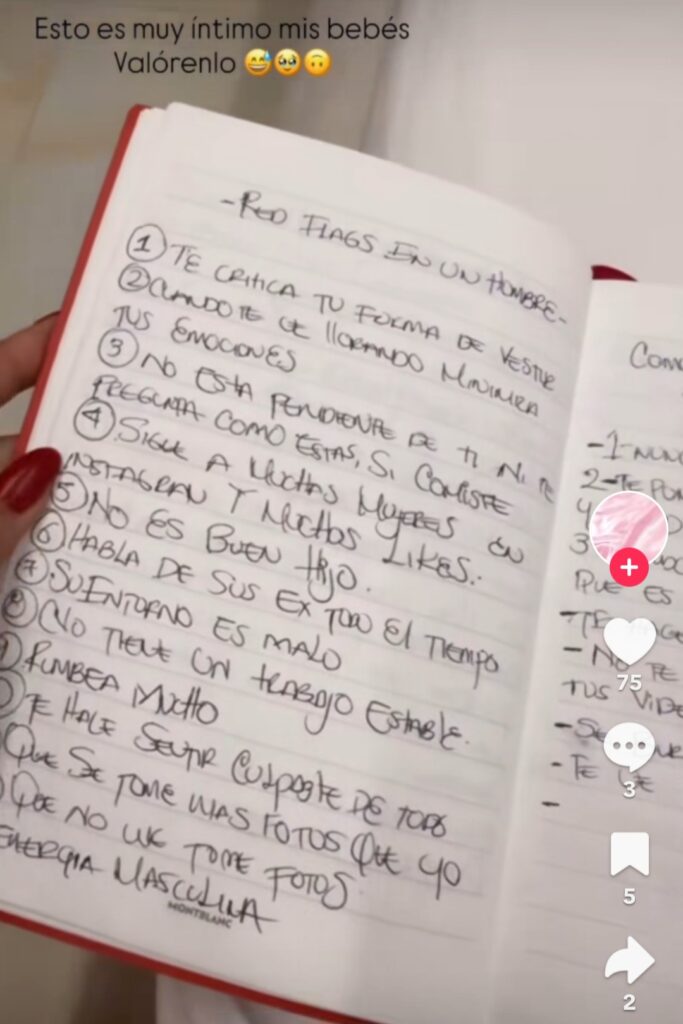 Esto es muy íntimo mis bebés
Valórenlo 😅🥹🙃
-RED FLAGS EN UN HOMBRE-
① TE CRITICA TU FORMA DE VESTIR
② CUANDO TE VE llORANDO MINIMIZA
TUS EMOCIONES
③ NO ESTA PENDIENTE DE TI NI TE
PREGUNTA COMO ESTAS, SI COMISTE
④ SIGUE A MUCHAS MUJERES EN
INSTAGRAN Y MUCHOS LIKES.
⑤ NO ES BUEN HIJO.
⑥ HABLA DE SUS EX TODO El TIEMPO
⑦ SU ENTORNO ES MALO
⑧ NO TIENE UN TRABAJO ESTABLE.
RUMBEA MUCHO
TE HACE SENTIR CULPABLE DE TODO
QUE SE TOME MAS FOTOS QUE YO
QUE NO ME TOME FOTOS
ENERGIA MASCULINA
MONTBLANC
-1-NUN
2-TE
3
QUE ES
- NO TE
TUS VIDE
- TE
75
3
5
2